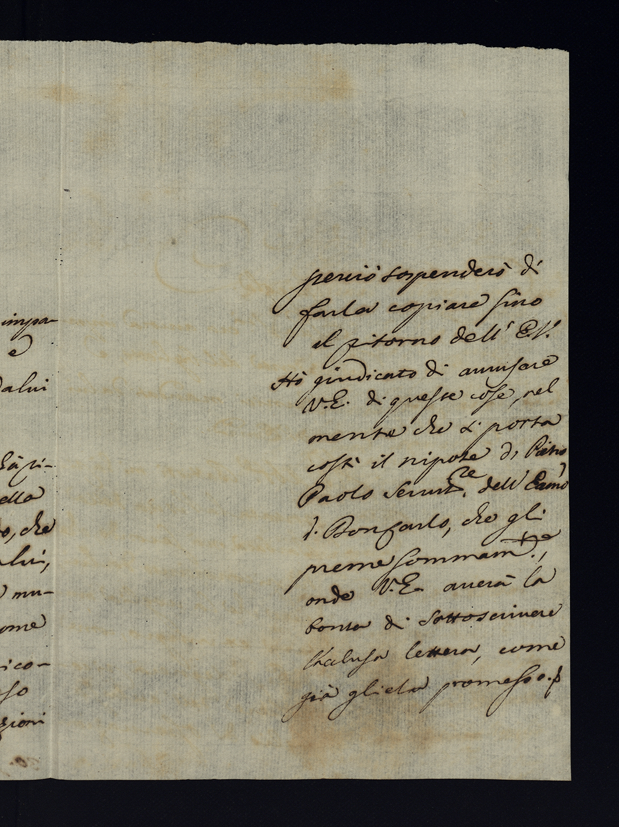 impa-
e
dalui
ella
o, che
lui,
mu-
ome
rico-
so
zioni
perciò sospenderò di
farla copiare sino
il ritorno dell' E.V.
Hò giudicato di avvisare
V.E. di queste cose, nel
mentre che si porta
costì il nipote di Pietro
Paolo Servit.re dell' Emo
che gli
preme sommam.te,
onde V.E. averà la
bontà di sottoscrivere
l'acclusa lettera, come
già gliela promesso.